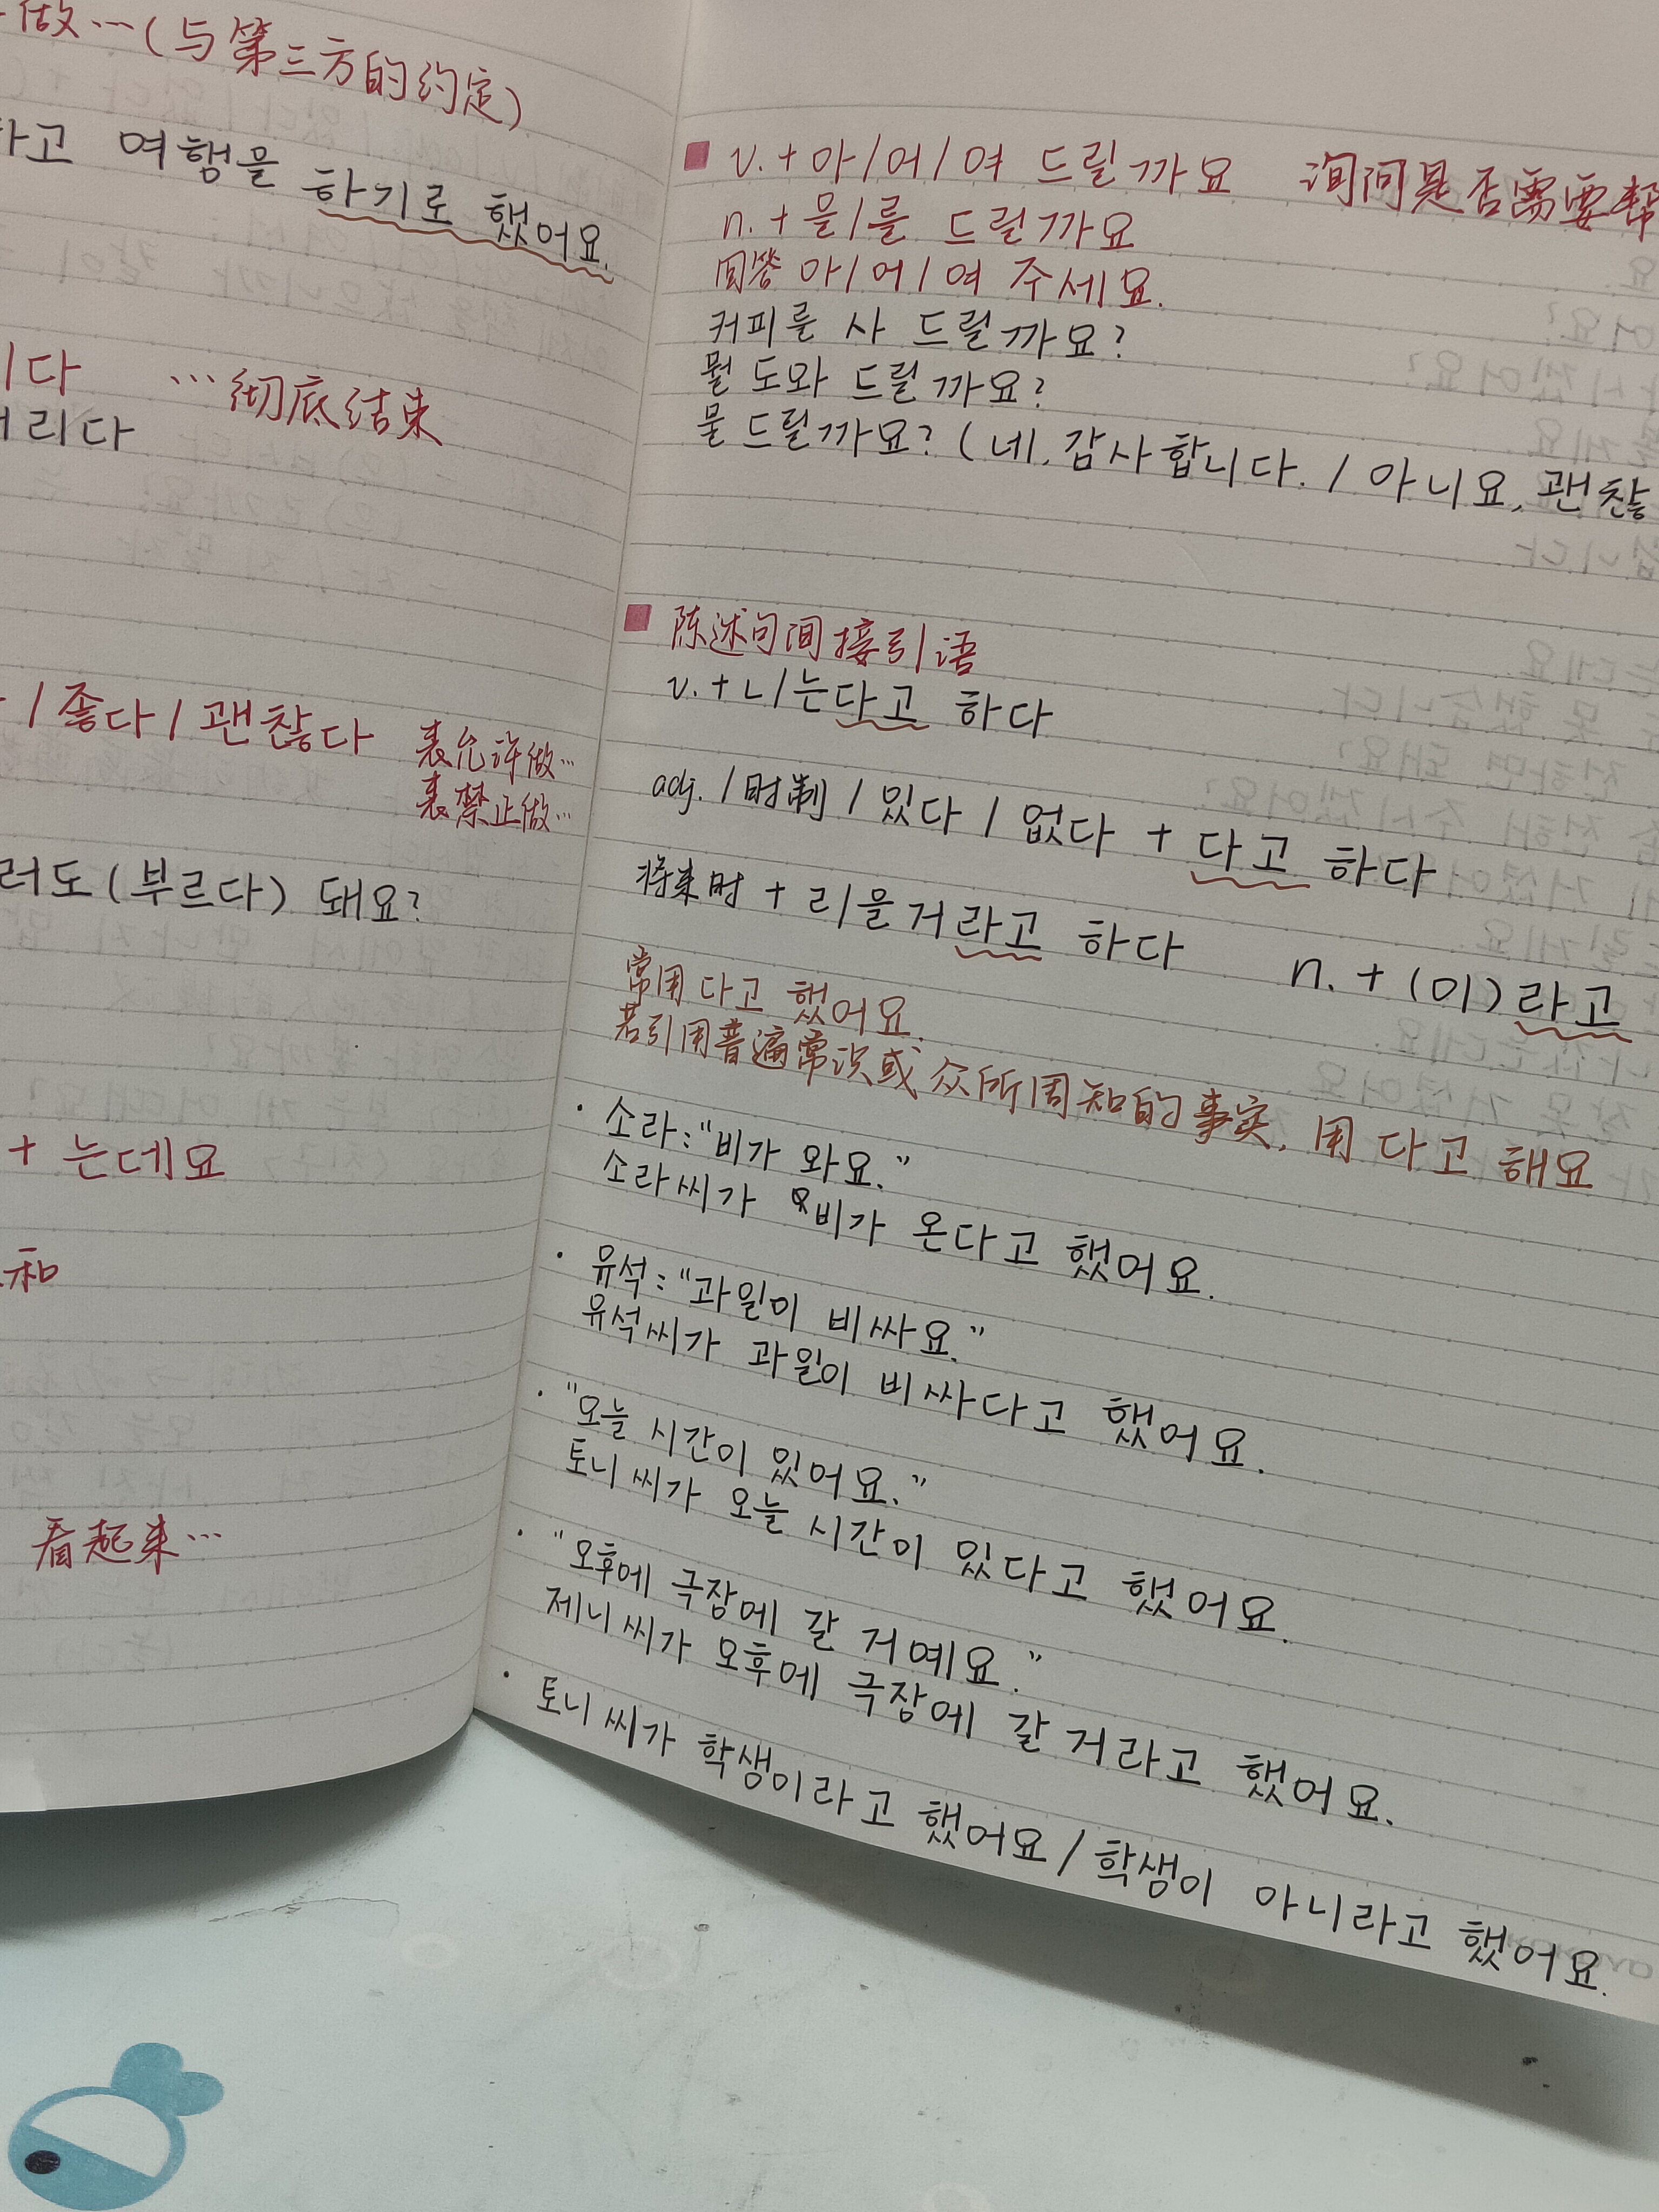 做…(与第三方的约定)
하고 여행을 하기로 했어요.
다 …彻底结束
리다
/좋다/괜찮다 表允许做…
表禁止做…
러도(부르다) 돼요?
+ 는데요
和
看起来…
v.+아/어/여 드릴까요 询问是否需要帮
n.+을/를 드릴까요
回答 아/어/여 주세요.
커피를 사 드릴까요?
뭘 도와 드릴까요?
물 드릴까요? (네, 감사합니다. / 아니요, 괜찮
陈述句间接引语
v.+ㄴ/는다고 하다
adj. /时制 / 있다 / 없다 + 다고 하다
将来时 + ㄹ/을거라고 하다 n. + (이)라고
常用 다고 했어요
若引用普遍常识或众所周知的事实, 用 다고 해요
· 소라:"비가 와요."
소라씨가 비가 온다고 했어요.
· 유석:"과일이 비싸요."
유석씨가 과일이 비싸다고 했어요.
· "오늘 시간이 있어요."
토니 씨가 오늘 시간이 있다고 했어요.
· "오후에 극장에 갈 거예요."
제니 씨가 오후에 극장에 갈 거라고 했어요.
· 토니 씨가 학생이라고 했어요/학생이 아니라고 했어요.